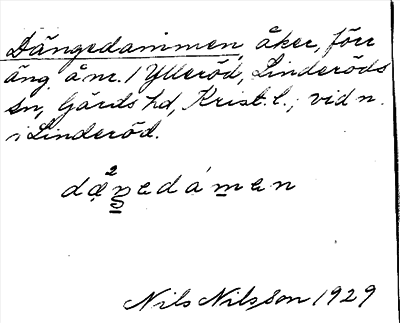 Dängedammen, åker, förr
äng å nr. 1 Ylleröd, Linderöds
sn, Gärds hd, Krist. l.; vid n.
i Linderöd.
dạ²ŋedámen
Nils Nilsson 1929